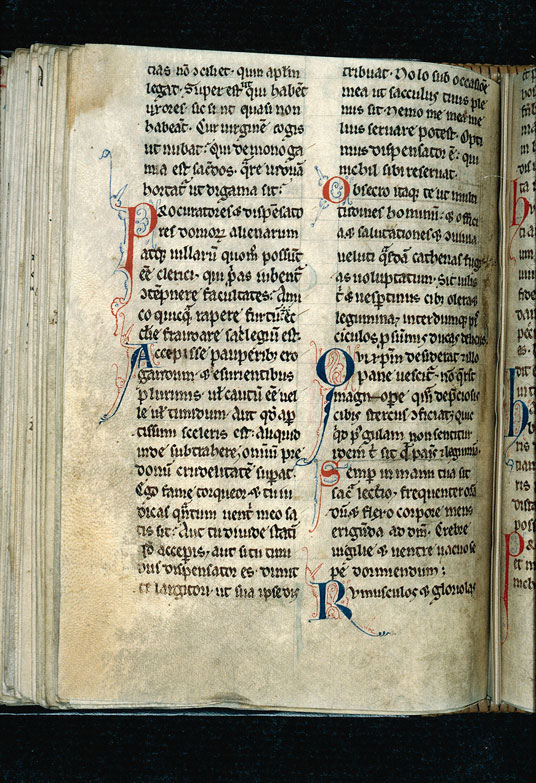 cias nō decet. quin aptm̄
legat. Super est ut qui habēt
uxores sic sint quasi non
habeāt. Cur uirginē cogis
ut nubat. Qui de monoga
mia est sacdos. qre uiduā
hortat̄ ut digama sit.
Procuratores & dispensato
res domoꝝ alienarum
atqꝫ uillaruꝫ quom̊ possūt
eē clerici. qui ꝓpas iubent̄
ꝯtēpnere facultates. Ami
co quicqͣ rapere furtū ē. ec
cliē fraudare sacͥlegiū est.
Accepisse pauperibꝫ ero
gandum & esurientibus
plurimis uł cautū eē uel
le uł timidum. Aut qd̄ ap
tissim sceleris est. aliquid
inde subtrahere. omniū pre
donū crudelitatē suꝑat.
Ego fame torqueor & tu iu
dicas qͣntum uentͥ meo sa
tis sit. Aut tu diuide stati
qd̄ acceperis. aut si tu timi
dus dispensator es. dimit
te largitori ut sua ipse dis
tribuat. Nolo sub occasiōe
mea ut sacculus tuus ple
nus sit. Nemo me mea me
lius seruare potest. Opti
mus dispensator ē. qui
nichil sibi reseruat.
Obsecro itaqꝫ te ut multi
titudines hominū. & offici
a & salutationes & conuiuia
ueluti qͣsdā cathenas fugi
as uoluptatum. Sit uilis
& uesptinus cib̄ olera &
legumina. interdumqꝫ pis
ciculos ꝓ sūmis ducas deliciis.
Qui xp̄m desiderat & illo
pane uescit̄. nō qͥrit
magnopē qͣm de p̄ciosis
cibis stercus ꝯficiat. quic
qͥd p̾ gulam non sentitur
idem t̄ sit qd̄ panis & legumina.
Semꝑ in manu tua sit
sacͣ lectio. frequenter oran
dū. & flexo corpore mens
erigēda ad dn̄m. Crebre
uigilie & uentre uacuo se
pe dormiendum.
Rumusculos & gloriolas